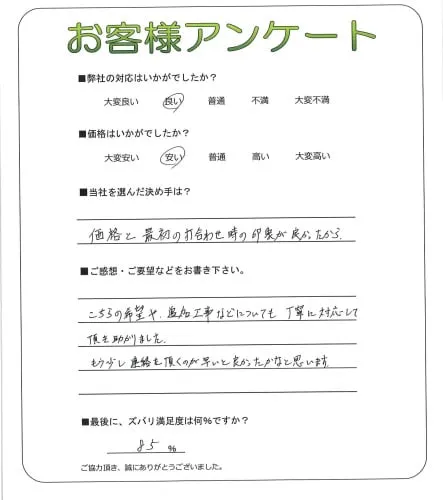 お客様アンケート
■弊社の対応はいかがでしたか?
大変良い 良い 普通 不満 大変不満
■価格はいかがでしたか?
大変安い 安い 普通 高い 大変高い
■当社を選んだ決め手は?
価格と最初の打合わせ時の印象が良かったから。
■ご感想・ご要望などをお書き下さい。
こちらの希望や、追加工事などについても丁寧に対応して
頂き助かりました。
もう少し連絡を頂くのが早いと良かったかなと思います。
■最後に、ズバリ満足度は何%ですか?
85 %
ご協力頂き、誠にありがとうございました。